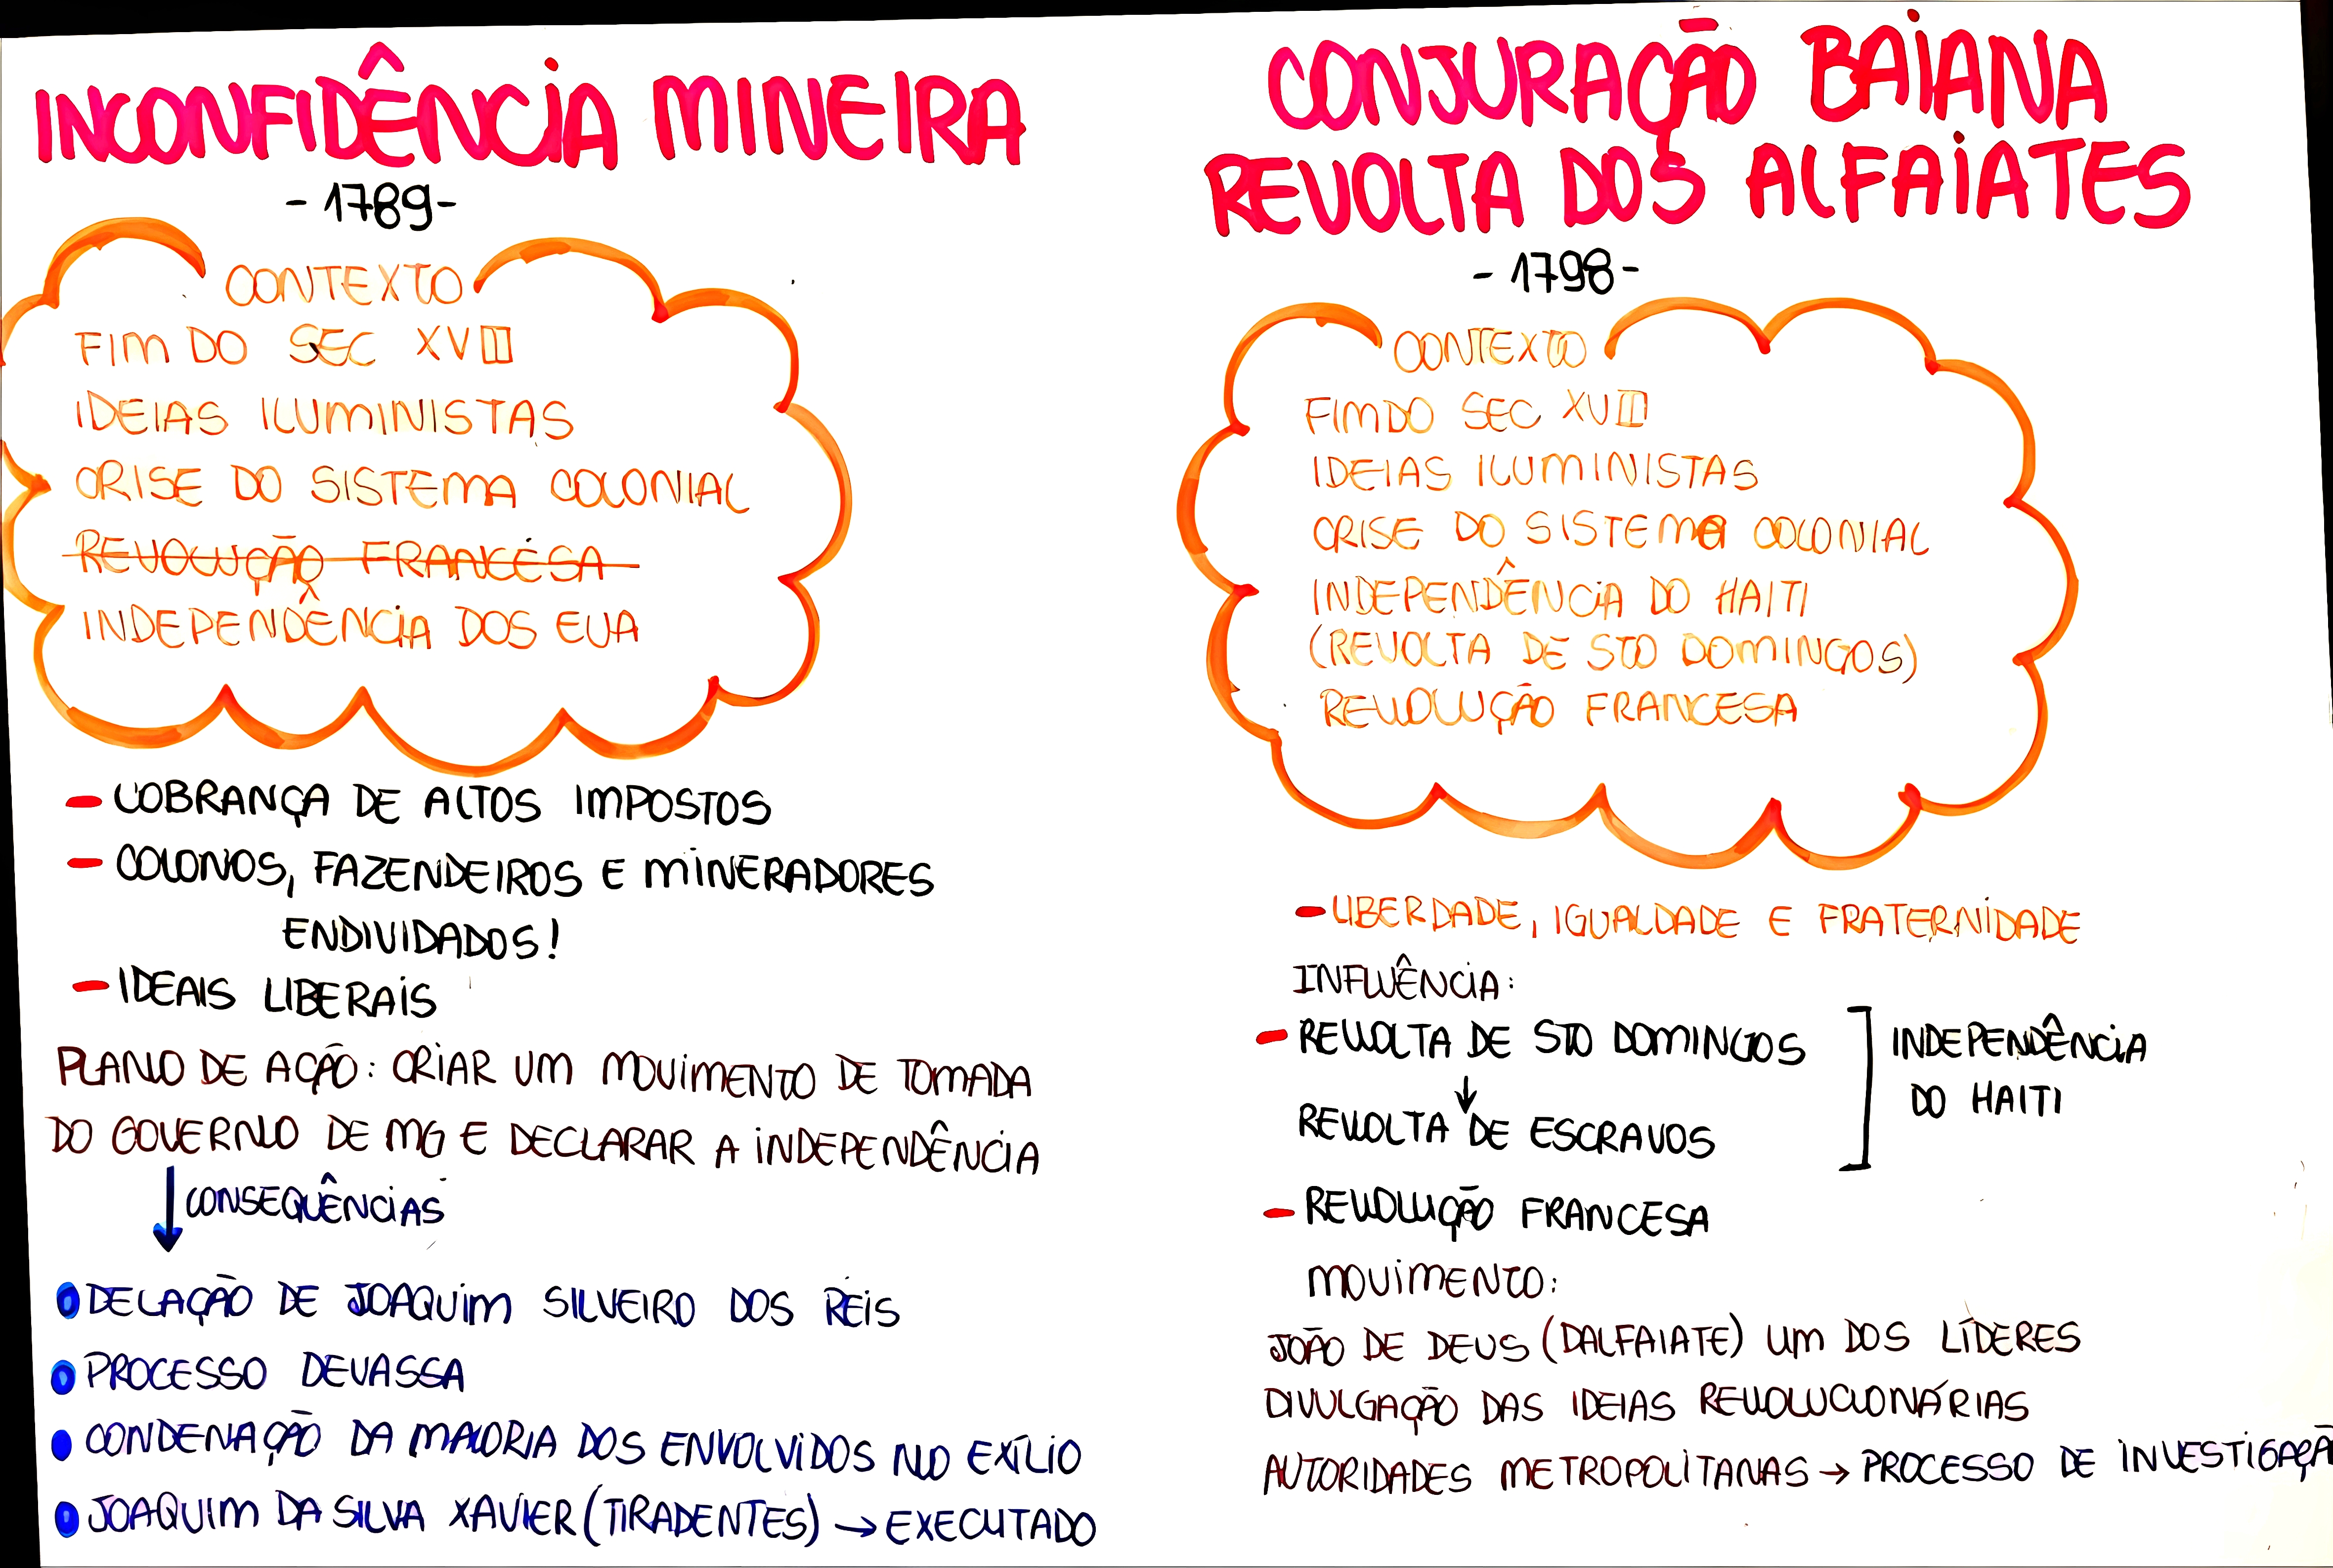 INCONFIDÊNCIA MINEIRA
- 1789 -
CONTEXTO
FIM DO SEC XVIII
IDEIAS ILUMINISTAS
CRISE DO SISTEMA COLONIAL
REVOLUÇÃO FRANCESA
INDEPENDÊNCIA DOS EUA
- COBRANÇA DE ALTOS IMPOSTOS
- COLONOS, FAZENDEIROS E MINERADORES
ENDIVIDADOS!
- IDEAIS LIBERAIS
PLANO DE AÇÃO: CRIAR UM MOVIMENTO DE TOMADA
DO GOVERNO DE MG E DECLARAR A INDEPENDÊNCIA
↓ CONSEQUÊNCIAS
• DELAÇÃO DE JOAQUIM SILVEIRO DOS REIS
• PROCESSO DEVASSA
• CONDENAÇÃO DA MAIORIA DOS ENVOLVIDOS NO EXÍLIO
• JOAQUIM DA SILVA XAVIER (TIRADENTES) → EXECUTADO
CONJURAÇÃO BAIANA
REVOLTA DOS ALFAIATES
- 1798 -
CONTEXTO
FIM DO SEC XVIII
IDEIAS ILUMINISTAS
CRISE DO SISTEMA COLONIAL
INDEPENDÊNCIA DO HAITI
(REVOLTA DE STO DOMINGOS)
REVOLUÇÃO FRANCESA
- LIBERDADE, IGUALDADE E FRATERNIDADE
INFLUÊNCIA:
- REVOLTA DE STO DOMINGOS
↓
REVOLTA DE ESCRAVOS
INDEPENDÊNCIA
DO HAITI
- REVOLUÇÃO FRANCESA
MOVIMENTO:
JOÃO DE DEUS (DALFAIATE) UM DOS LÍDERES
DIVULGAÇÃO DAS IDEIAS REVOLUCIONÁRIAS
AUTORIDADES METROPOLITANAS → PROCESSO DE INVESTIGAÇÃ